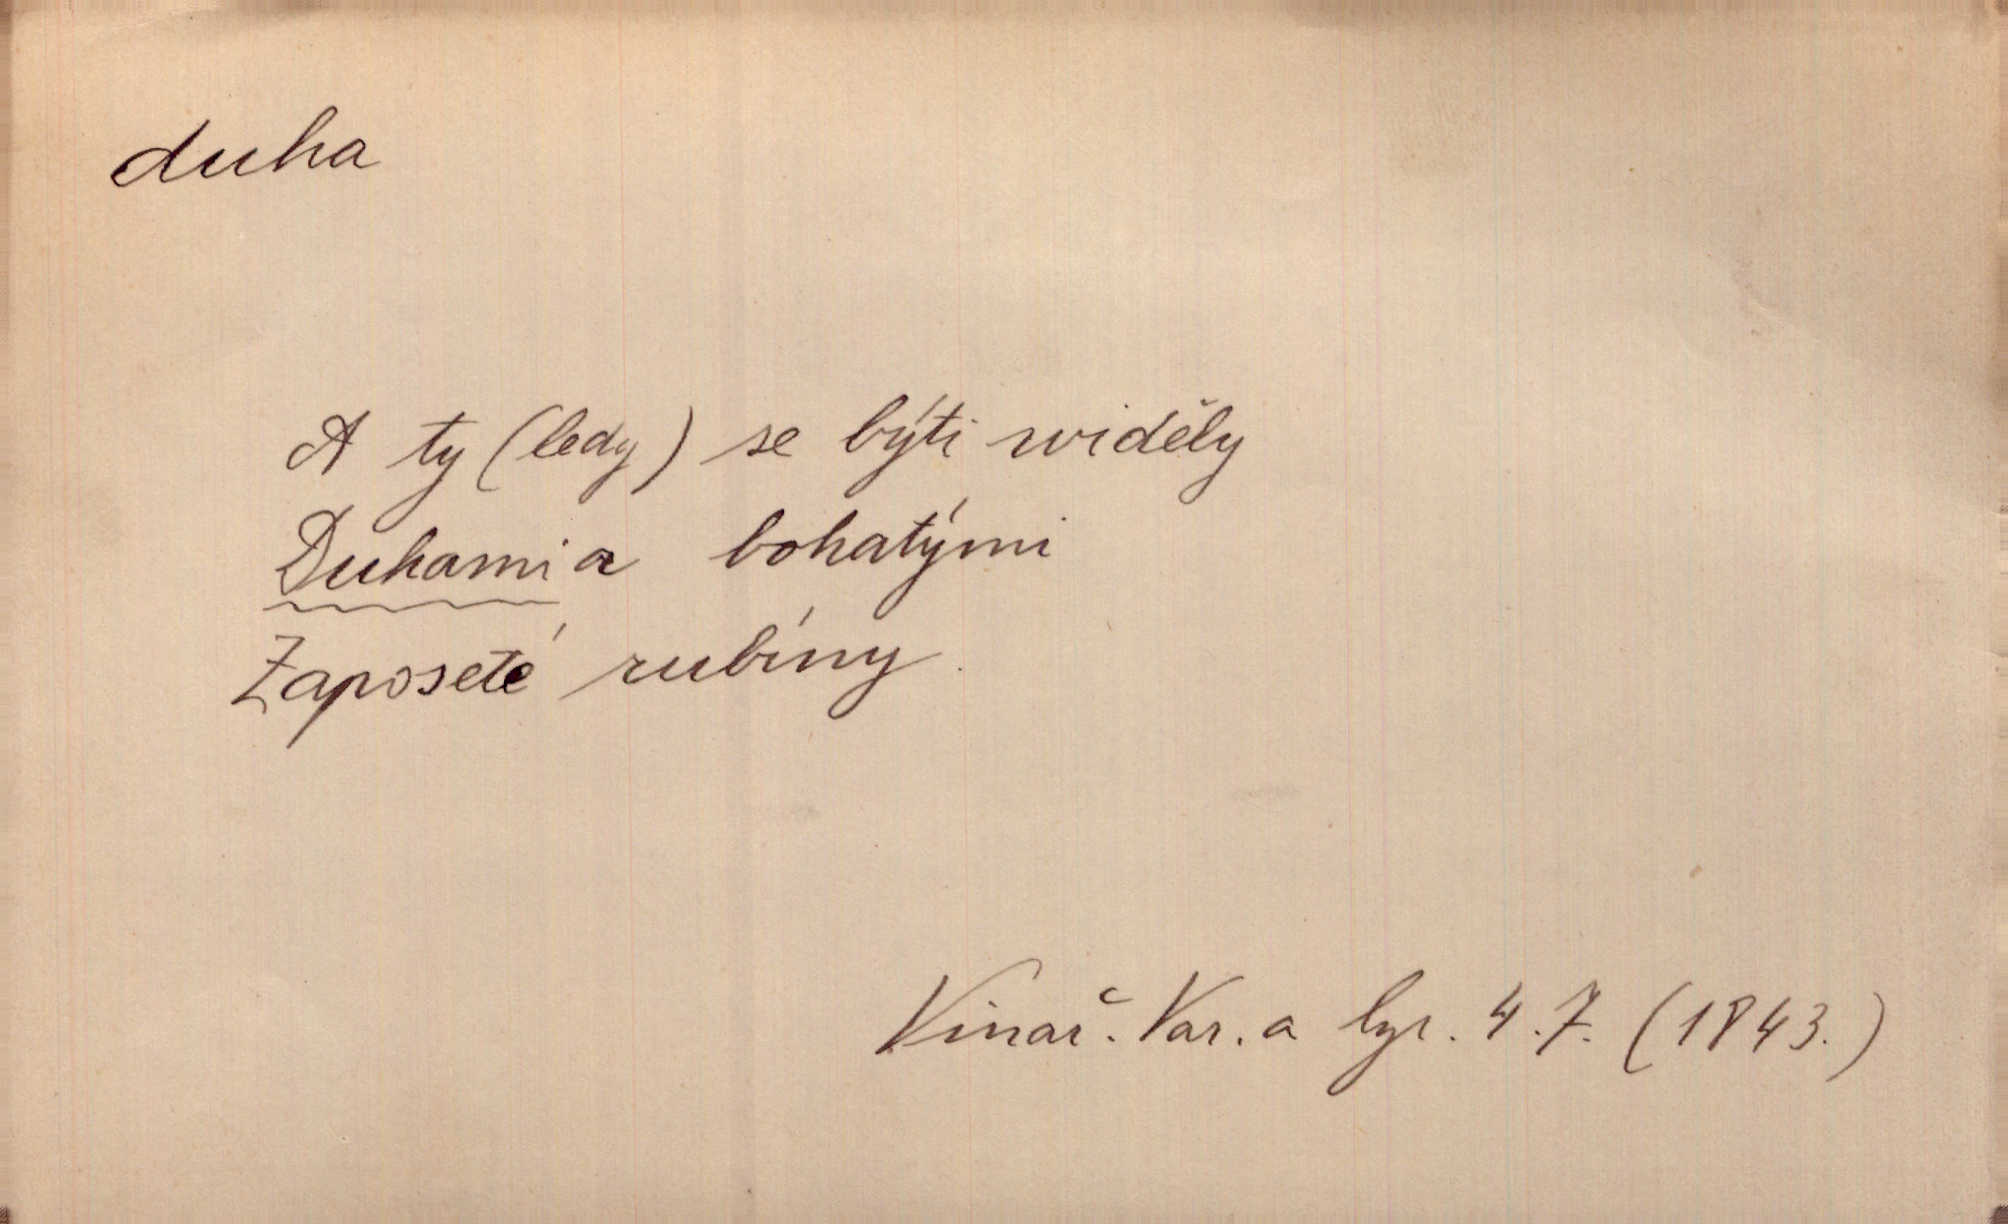 duha
A ty (ledy) se býti widěly
Duhami a bohatými
Zaposeté rubíny.
Vinař. Var. a lyr. 4.7. (1843.)